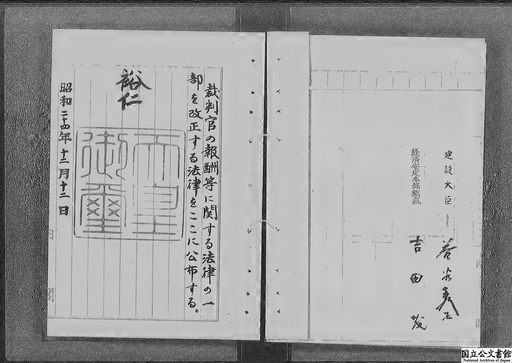 建設大臣
益谷秀次
経済安定本部総裁
吉田茂
裁判官の報酬等に関する法律の一
部を改正する法律をここに公布する。
裕仁
天皇
御璽
昭和二十四年十二月十二日
国立公文書館
National Archives of Japan